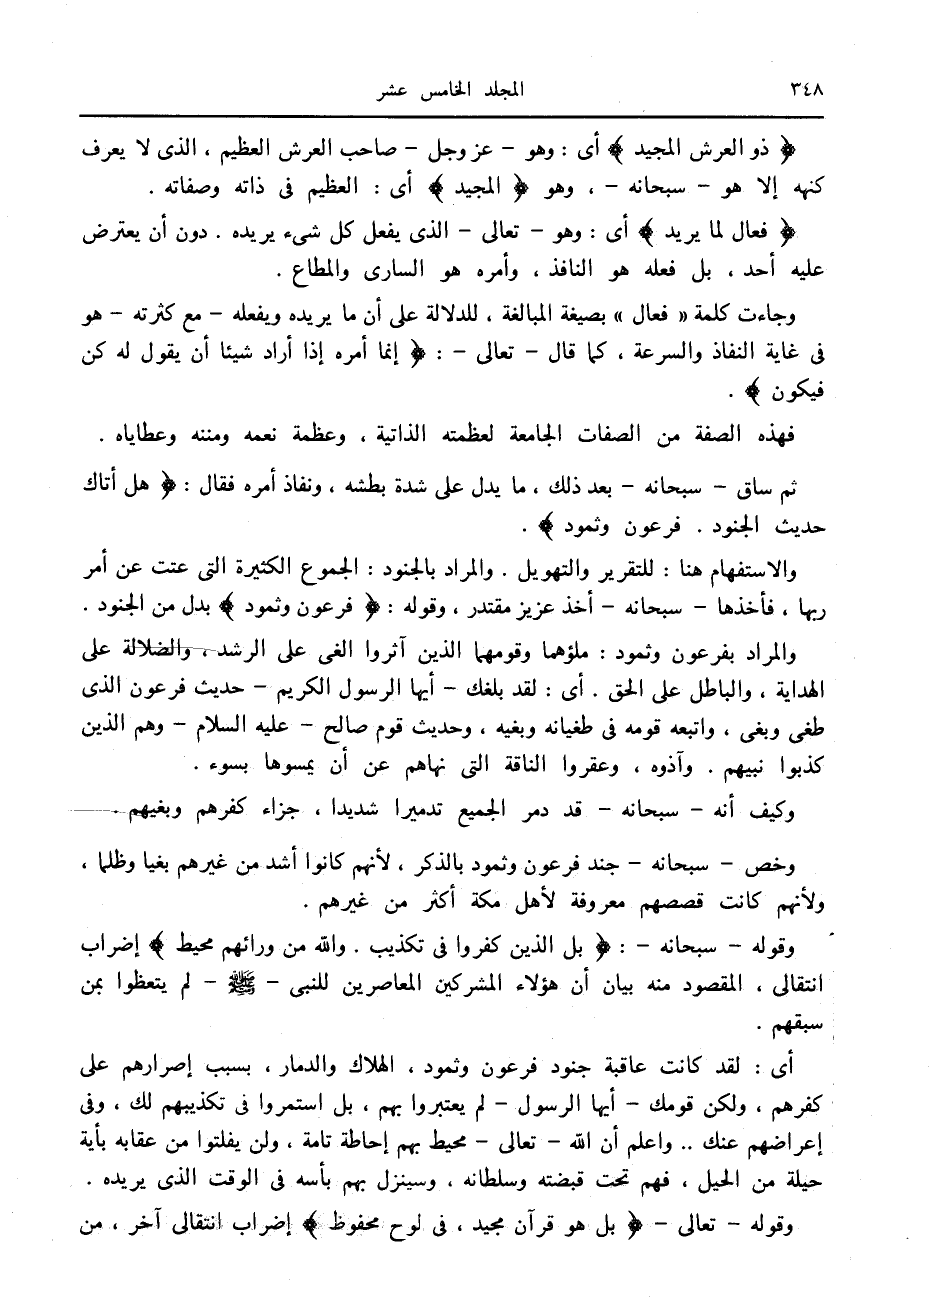 ٣٤٨ المجلد الخامس عشر
﴿ ذو العرش المجيد ﴾ أى : وهو – عز وجل – صاحب العرش العظيم ، الذى لا يعرف
كنهه إلا هو – سبحانه – ، وهو ﴿ المجيد ﴾ أى : العظيم فى ذاته وصفاته .
﴿ فعال لما يريد ﴾ أى : وهو – تعالى – الذى يفعل كل شىء يريده . دون أن يعترض
عليه أحد ، بل فعله هو النافذ ، وأمره هو السارى والمطاع .
وجاءت كلمة « فعال » بصيغة المبالغة ، للدلالة على أن ما يريده ويفعله – مع كثرته – هو
فى غاية النفاذ والسرعة ، كما قال – تعالى – : ﴿ إنما أمره إذا أراد شيئا أن يقول له كن
فيكون ﴾ .
فهذه الصفة من الصفات الجامعة لعظمته الذاتية ، وعظمة نعمه ومننه وعطاياه .
ثم ساق – سبحانه – بعد ذلك ، ما يدل على شدة بطشه ، ونفاذ أمره فقال : ﴿ هل أتاك
حديث الجنود . فرعون وثمود ﴾ .
والاستفهام هنا : للتقرير والتهويل . والمراد بالجنود : الجموع الكثيرة التى عتت عن أمر
ربها ، فأخذها – سبحانه – أخذ عزيز مقتدر ، وقوله : ﴿ فرعون وثمود ﴾ بدل من الجنود .
والمراد بفرعون وثمود : ملؤهما وقومهما الذين آثروا الغى على الرشد ، والضلالة على
الهداية ، والباطل على الحق . أى : لقد بلغك – أيها الرسول الكريم – حديث فرعون الذى
طغى وبغى ، واتبعه قومه فى طغيانه وبغيه ، وحديث قوم صالح – عليه السلام – وهم الذين
كذبوا نبيهم . وآذوه ، وعقروا الناقة التى نهاهم عن أن يمسوها بسوء .
وكيف أنه – سبحانه – قد دمر الجميع تدميرا شديدا ، جزاء كفرهم وبغيهم .
وخص – سبحانه – جند فرعون وثمود بالذكر ، لأنهم كانوا أشد من غيرهم بغيا وظلما ،
ولأنهم كانت قصصهم معروفة لأهل مكة أكثر من غيرهم .
وقوله – سبحانه – : ﴿ بل الذين كفروا فى تكذيب . والله من ورائهم محيط ﴾ إضراب
انتقالى ، المقصود منه بيان أن هؤلاء المشركين المعاصرين للنبى – ﷺ – لم يتعظوا بمن
سبقهم .
أى : لقد كانت عاقبة جنود فرعون وثمود ، الهلاك والدمار ، بسبب إصرارهم على
كفرهم ، ولكن قومك – أيها الرسول – لم يعتبروا بهم ، بل استمروا فى تكذيبهم لك ، وفى
إعراضهم عنك .. واعلم أن الله – تعالى – محيط بهم إحاطة تامة ، ولن يفلتوا من عقابه بأية
حيلة من الحيل ، فهم تحت قبضته وسلطانه ، وسينزل بهم بأسه فى الوقت الذى يريده .
وقوله – تعالى – ﴿ بل هو قرآن مجيد ، فى لوح محفوظ ﴾ إضراب انتقالى آخر ، من